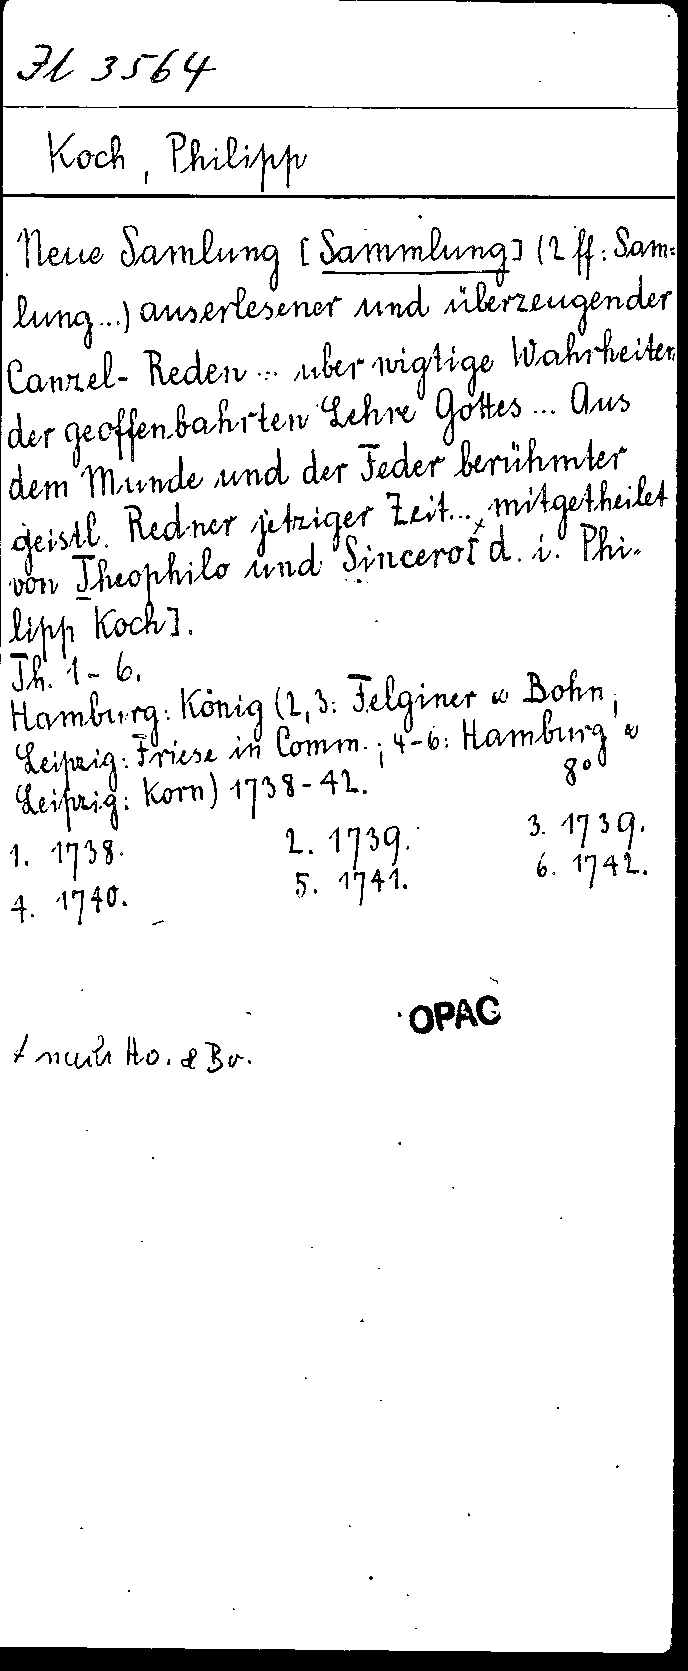 Jl 3564
Koch, Philipp
Neue Samlung [Sammlung] (2 ff: Sam=
lung...) auserlesener und überzeugender
Canzel-Reden ... uber wigtige Wahrheiten
der geoffenbahrten Lehre Gottes ... Aus
dem Munde und der Feder berühmter
geistl. Redner jetziger Zeit... mitgetheilet
von Theophilo und Sincero [d. i. Phi-
lipp Koch].
Th. 1-6.
Hamburg: König (2, 3: Felginer u Bohn;
Leipzig: Friese in Comm.; 4-6: Hamburg u
Leipzig: Korn) 1738-42. 8°
1. 1738. 2. 1739. 3. 1739.
4. 1740. 5. 1741. 6. 1742.
OPAC
Ho. & Bo.